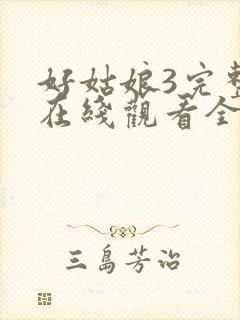 好姑娘3完整
在线觀看全
三島芳治